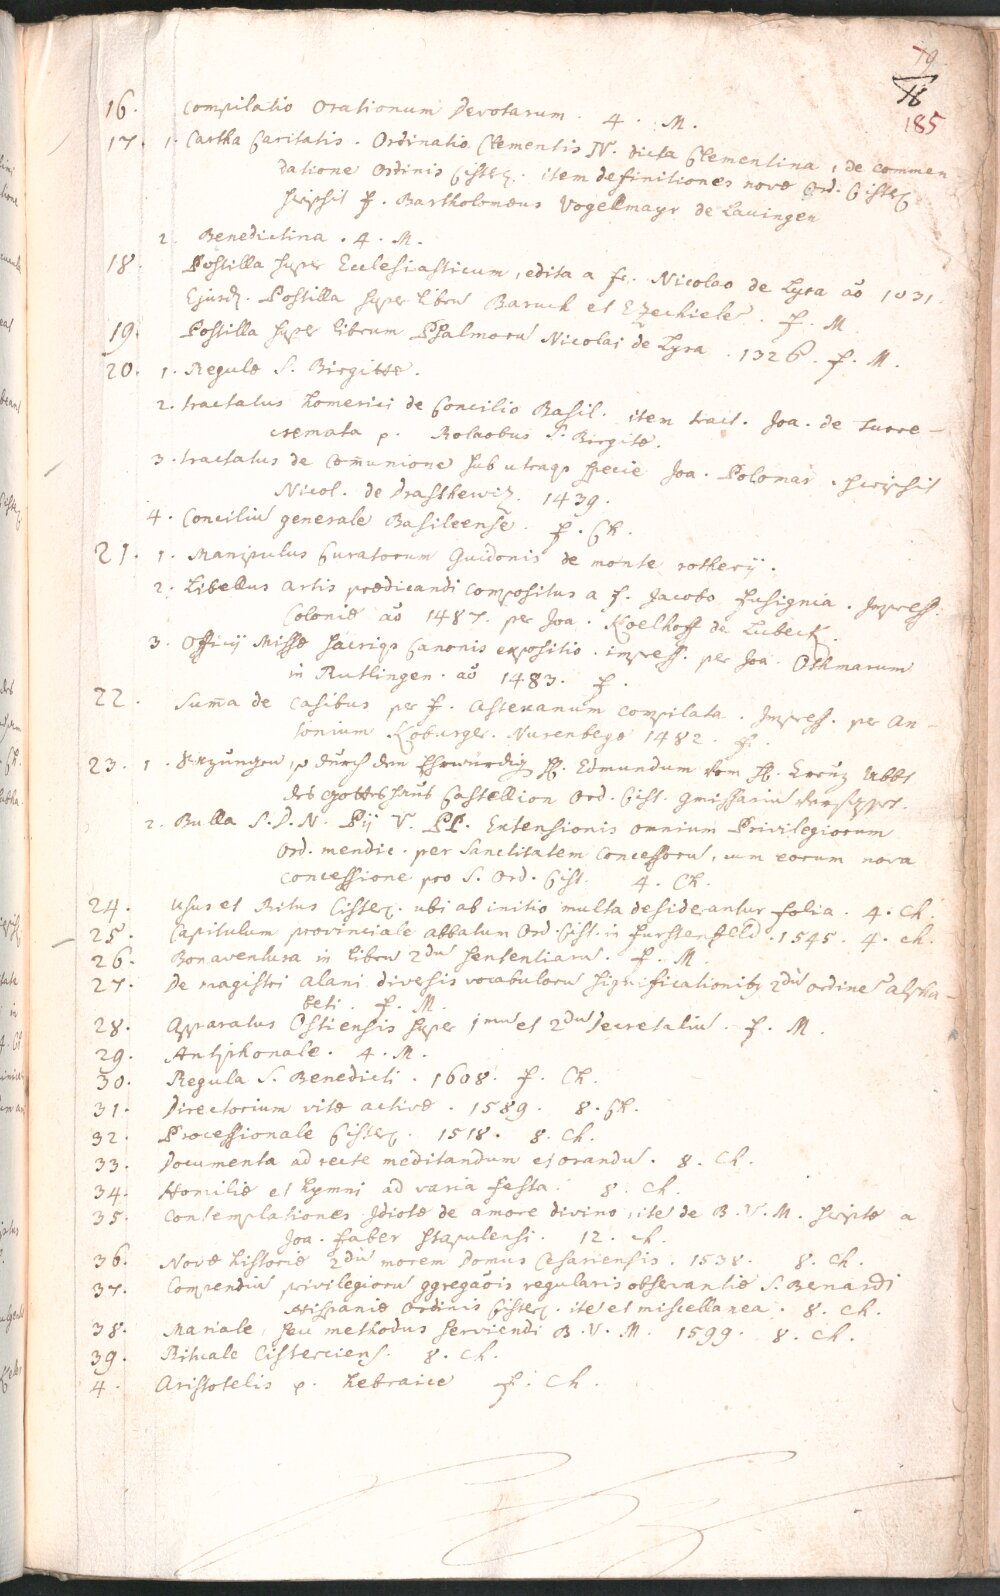 79
185
16. Compilatio Orationum Devotarum. 4. M.
17. 1. Cartha Caritatis. Ordinatio Clementis IV. dicta Clementina, de commen
datione Ordinis Cisterc. item definitiones novæ Ord. Cisterc
scripsit f. Bartholomæus Vogellmayr de Lauingen
2. Benedictina. 4. M.
18. Postilla super Ecclesiasticum, edita a fr. Nicolao de Lyra aõ 1031.
Ejusd. Postilla super librũ Baruch et Ezechielẽ. f. M.
19. Postilla super librum Psalmorũ Nicolai de Lyra. 1326. f. M.
20. 1. Regulæ S. Birgittæ.
2. tractatus homerici de Concilio Basil. item tract. Joa. de turre-
cremata p. Birgitæ.
3. tractatus de Com̃unione sub utraq; specie Joa. Polomar. scripsit
Nicol. de Drasthewiz. 1439.
4. Conciliũ generale Basileense. f. Ch.
21. 1. Manipulus Curatorum Guidonis de monte rotherij.
2. Libellus artis prædicandi compositus a f. Jacobo fusignia. Impress.
Coloniæ aõ 1487. per Joa. Koelhoff de Lubeck.
3. Officij Missæ sacriq; Canonis expositio. impress. per Joa. Othmarum
in Rutlingen. aõ 1483. f.
22. Sum̃a de casibus per f. Astexanum compilata. Impress. per An-
tonium Koburger. Nurenbege 1482. f.
23. 1. durch den Ehrwürdig H. Edmundum vom H. Creüz Abbt
des Gotteshaus Castellion Ord. Cist.
2. Bulla S. D. N. Pij V. PP. Extensionis omnium Privilegiorum
Ord. mendic. per Sanctitatem Concessorũ, cum eorum nova
concessione pro S. Ord. Cist. 4. Ch.
24. Usus et Ritus Cisterc. ubi ab initio multa desiderantur folia. 4. Ch.
25. Capitulum provinciale abbatum Ord. Cist. in furstenfeld. 1545. 4. ch.
26. Bonaventura in librũ 2dũ sententiarũ. f. M.
27. De magistri alani diversis vocabulorũ significationib; 2dũ ordinẽ alpha-
beti. f. M.
28. Apparatus Ostiensis super 1mũ et 2dũ decretaliũ. f. M.
29. Antiphonale. 4. M.
30. Regula S. Benedicti. 1608. f. Ch.
31. Directorium vitæ activæ. 1589. 8. Ch.
32. Processionale Cisterc. 1518. 8. Ch.
33. Documenta ad recte meditandum et orandũ. 8. Ch.
34. Homiliæ et hymni ad varia festa. 8. Ch.
35. Contemplationes Idiotæ de amore divino, itẽ de B. V. M. scriptæ a
Joa. Faber Stapulensi. 12. ch.
36. Novæ historiæ 2dũ morem Domus Cesariensis. 1538. 8. Ch.
37. Compendiũ privilegiorũ ggregaõis regularis observantiæ S. Benardi
Hispaniæ Ordinis Cisterc. itẽ et miscellanea. 8. Ch.
38. Mariale, seu methodus serviendi B. V. M. 1599. 8. Ch.
39. Rituale Cisterciens. 8. Ch.
4. Aristotelis p. hebraice f. Ch.